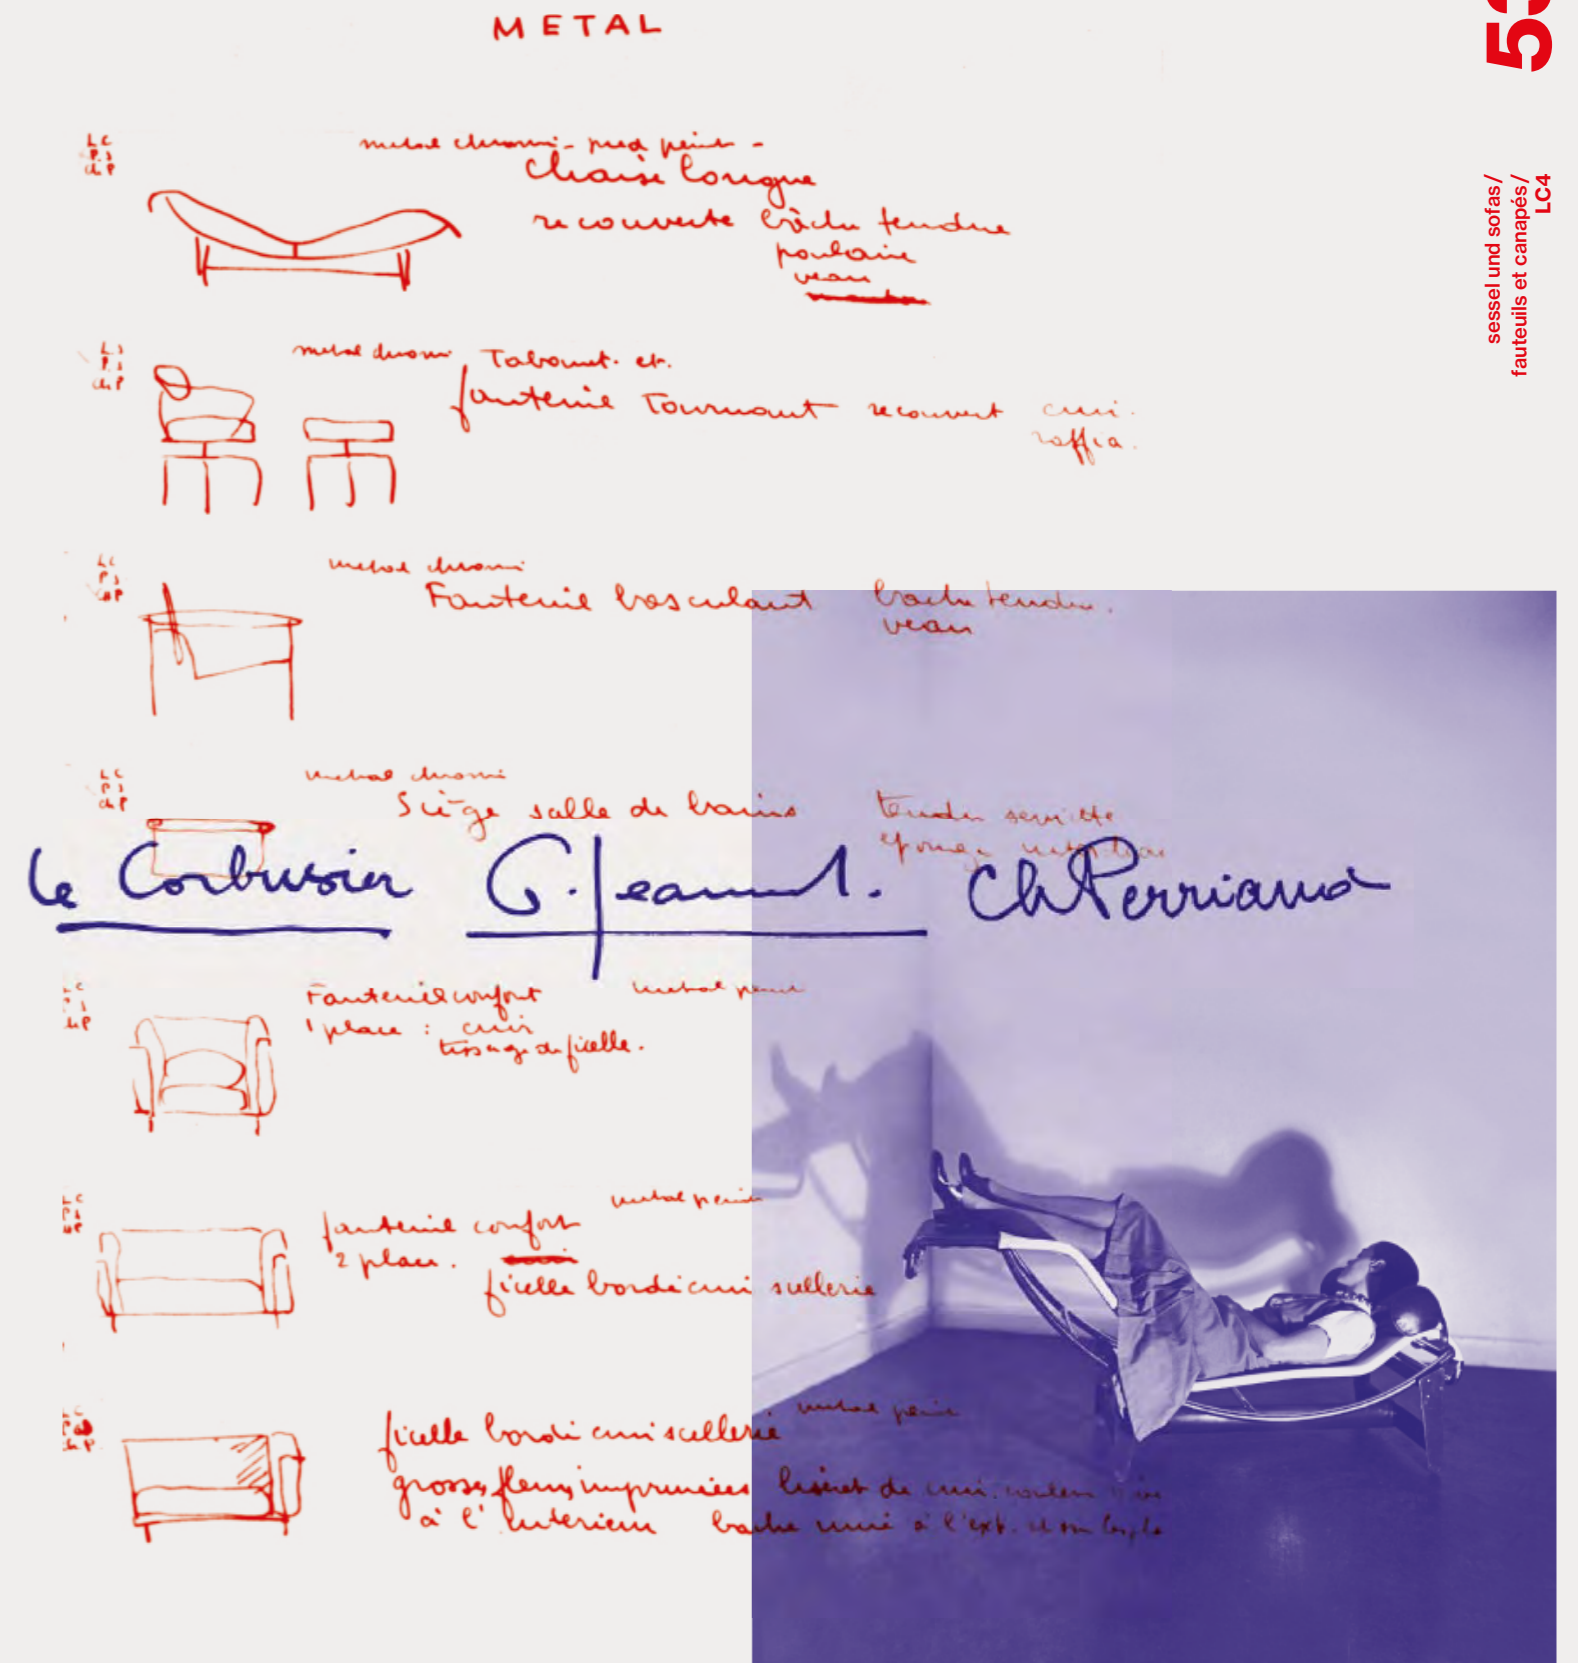 METAL
LC
P.J
ch P
metal chromé - pied peint -
chaise longue
recouverte bâche tendue
poulain
veau
LC
P.J
ch P
metal chromé Tabouret et
fauteuil Tournant recouvert cuir.
raffia.
LC
P.J
ch P
metal chromé
Fauteuil basculant bache tendue.
veau
LC
P.J
ch P
metal chromé
Siège salle de bains tendu serviette
eponge
le Corbusier P. Jeanneret. Ch Perriand
LC
P.J
ch P
Fauteuil confort metal peint
1 place : cuir
tissage de ficelle.
LC
P.J
fauteuil confort metal peint
2 place.
ficelle bordé cuir sellerie
metal peint
ficelle bordé cuir sellerie
grosses fleurs imprimées liseret de cuir. couleur
à l'interieur bache unie à l'ext. et
53
sessel und sofas/
fauteuils et canapés/
LC4